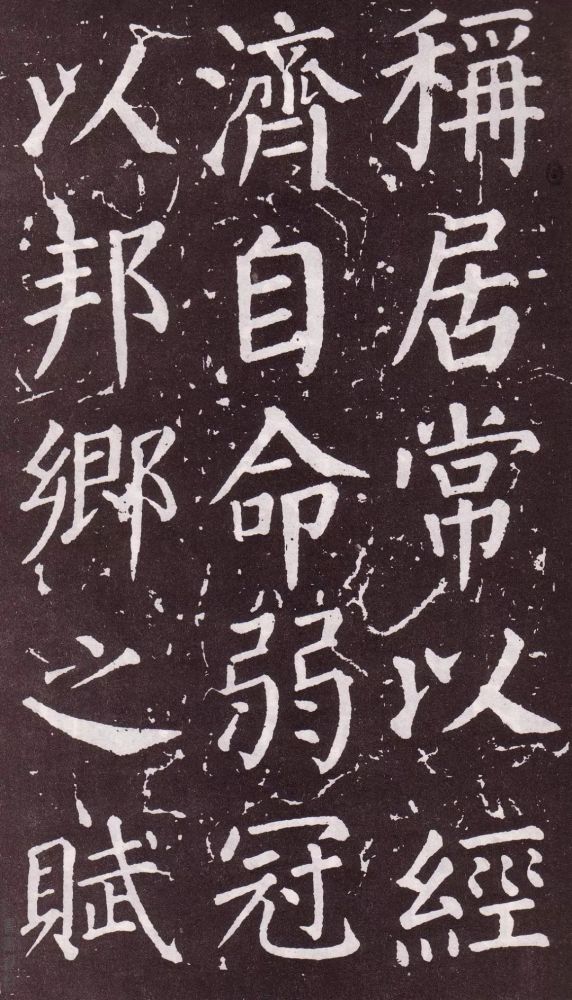 稱居常以經
濟自命弱冠
以邦鄉之賦